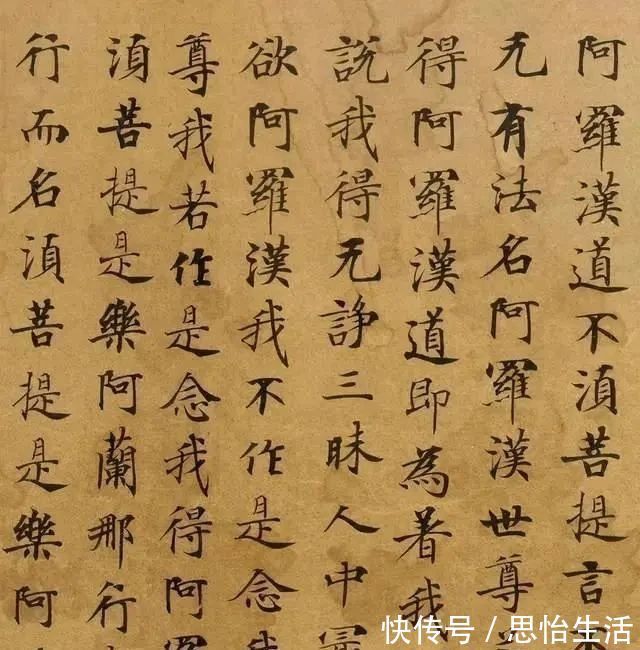 阿羅漢道不湏菩提言
无有法名阿羅漢世尊
得阿羅漢道即為著我
說我得无諍三昧人中
欲阿羅漢我不作是念
尊我若作是念我得阿羅
湏菩提是樂阿蘭那行
行而名湏菩提是樂阿
快传号／思怡生活